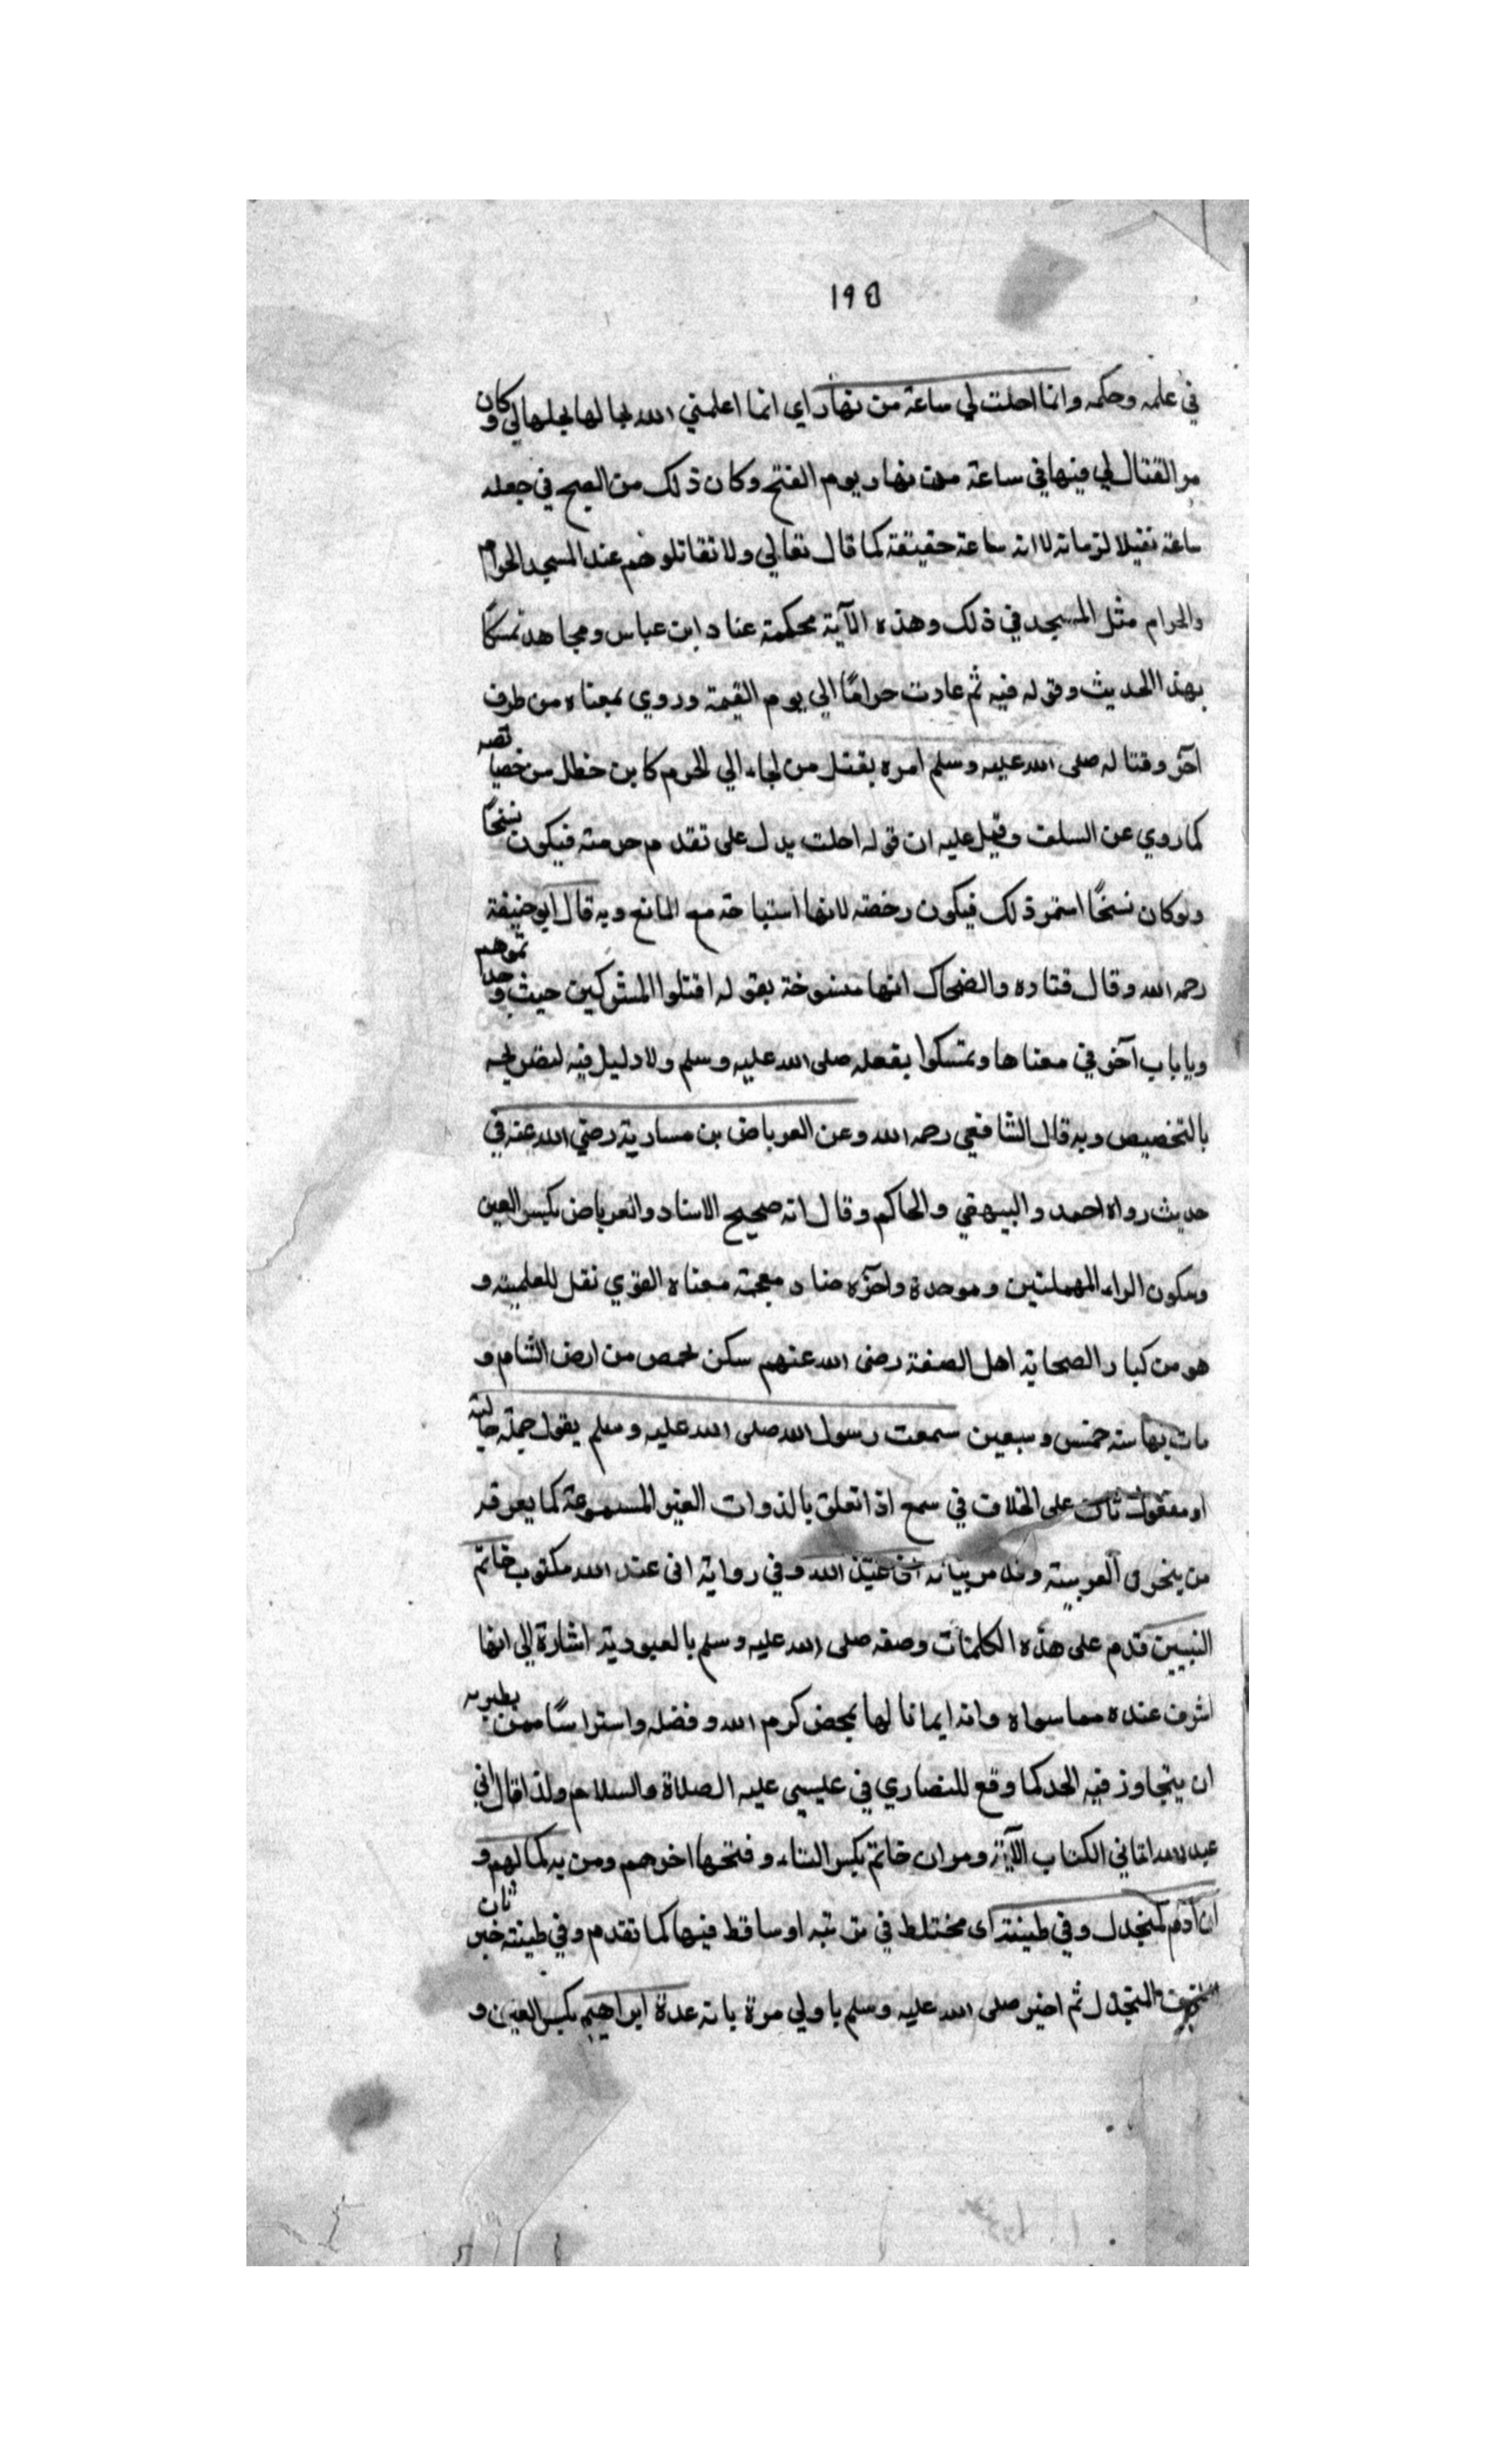 ١٩٥
في علمه وحكمه وانما احلت لي ساعة من نهار اي انما اعلمني الله بما لها بجلها لي وكان
مر القتال لي فيها في ساعة من نهار يوم الفتح وكان ذلك من الصبح في جعله
ساعة تقيلا لزمانه لا انه ساعة حقيقة كما قال تعالي ولا تقاتلوهم عند المسجد الحرام
والحرام مثل المسجد في ذلك وهذه الآية محكمة عناد ابن عباس ومجاهد تمسكا
بهذا الحديث وقوله فيه ثم عادت حراما الي يوم القيمة وروي بمعناه من طرف
آخر وقتاله صلى الله عليه وسلم امره بقتل من لجاء الي الحرم كابن خطل من خصايصه
كما روي عن السلف وقيل عليه ان قوله احلت يدل على تقدم حرمته فيكون نسخًا
ولو كان نسخًا استمر ذلك فيكون رخصة لانها استباحة مع المانع وبه قال ابو حنيفة
رحمه الله وقال قتاده والضحاك انها منسوخة بقوله اقتلوا المشركين حيث وجدتموهم
وبايات آخر في معناها وتمسكوا بفعله صلى الله عليه وسلم ولا دليل فيه لتصريحه
بالتخصيص وبه قال الشافعي رحمه الله وعن العرباض بن سارية رضي الله عنه في
حديث رواه احمد والبيهقي والحاكم وقال انه صحيح الاسناد والعرباض بكسر العين
وسكون الراء المهملتين وموحدة واخره ضاد معجمة معناه القوي نقل للعلمية و
هو من كبار الصحابة اهل الصفة رضى الله عنهم سكن بحمص من ارض الشام و
مات بها سنه خمس وسبعين سمعت رسول الله صلى الله عليه وسلم يقول جملة حالية
او مفعول ثان على الخلاف في سمع اذا تعلق بالذوات الغير المسموعة كما يعرفه
من العربية وقد مر بيانه انى عبد الله وفي رواية انى عند الله مكتوب خاتم
النبيين قدم على هذه الكلمات وصفه صلى الله عليه وسلم بالعبودية اشارة الي انها
اشرف عنده مما سواه وانه ايمانا لها بمحض كرم الله وفضله واستراسًا ممن يطريه
ان يتجاوز فيه الحد كما وقع للنصاري في عليسى عليه الصلاة والسلام ولذا قال اني
عبد الله اتاني الكتاب الآية ومر ان خاتم بكسر التاء وفتحها اخرهم ومن به كمالهم و
ان آدم لمنجدل وفي طينته اى مختلط في تربته او ساقط فيها كما تقدم وفي طينته خبر ثان
المنجدل ثم اخبر صلى الله عليه وسلم باولي مرة بانه عدة ابراهيم بكسر العين و